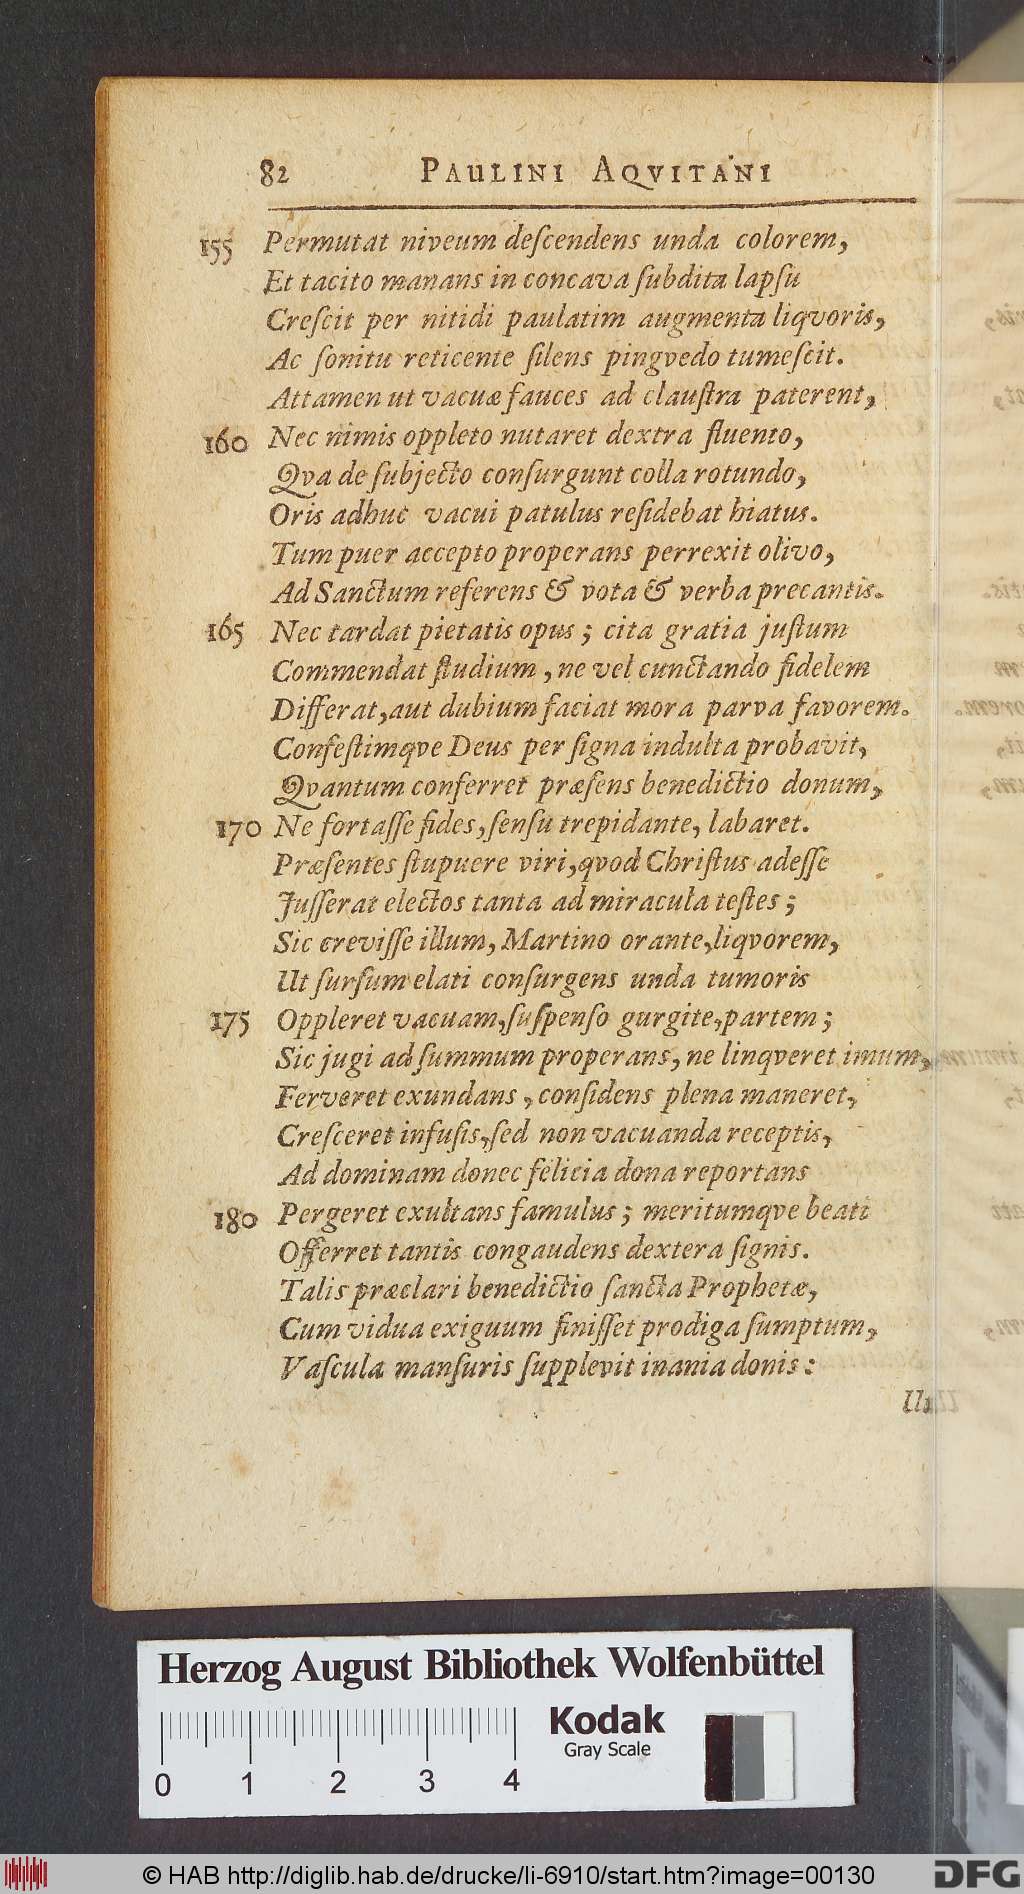 82 PAULINI AQVITANI
155 Permutat niveum deſcendens unda colorem,
Et tacito manans in concava ſubdita lapſu
Creſcit per nitidi paulatim augmenta liqvoris,
Ac ſonitu reticente ſilens pingvedo tumeſcit.
Attamen ut vacuæ fauces ad clauſtra paterent,
160 Nec nimis oppleto nutaret dextra fluento,
Qva de ſubjecto conſurgunt colla rotundo,
Oris adhuc vacui patulus reſidebat hiatus.
Tum puer accepto properans perrexit olivo,
Ad Sanctum referens & vota & verba precantis.
165 Nec tardat pietatis opus; cita gratia juſtum
Commendat ſtudium, ne vel cunctando fidelem
Differat, aut dubium faciat mora parva favorem.
Confeſtimqve Deus per ſigna indulta probavit,
Qvantum conferret præſens benedictio donum,
170 Ne fortaſſe fides, ſenſu trepidante, labaret.
Præſentes ſtupuere viri, qvod Chriſtus adeſſe
Juſſerat electos tanta ad miracula teſtes;
Sic creviſſe illum, Martino orante, liqvorem,
Ut ſurſum elati conſurgens unda tumoris
175 Oppleret vacuam, ſuſpenſo gurgite, partem;
Sic jugi ad ſummum properans, ne linqveret imum,
Ferveret exundans, conſidens plena maneret,
Creſceret infuſis, ſed non vacuanda receptis,
Ad dominam donec felicia dona reportans
180 Pergeret exultans famulus; meritumqve beati
Offerret tantis congaudens dextera ſignis.
Talis præclari benedictio ſancta Prophetæ,
Cum vidua exiguum finiſſet prodiga ſumptum,
Vaſcula manſuris ſupplevit inania donis:
Herzog August Bibliothek Wolfenbüttel
Kodak
Gray Scale
0 1 2 3 4
© HAB http://diglib.hab.de/drucke/li-6910/start.htm?image=00130
DFG